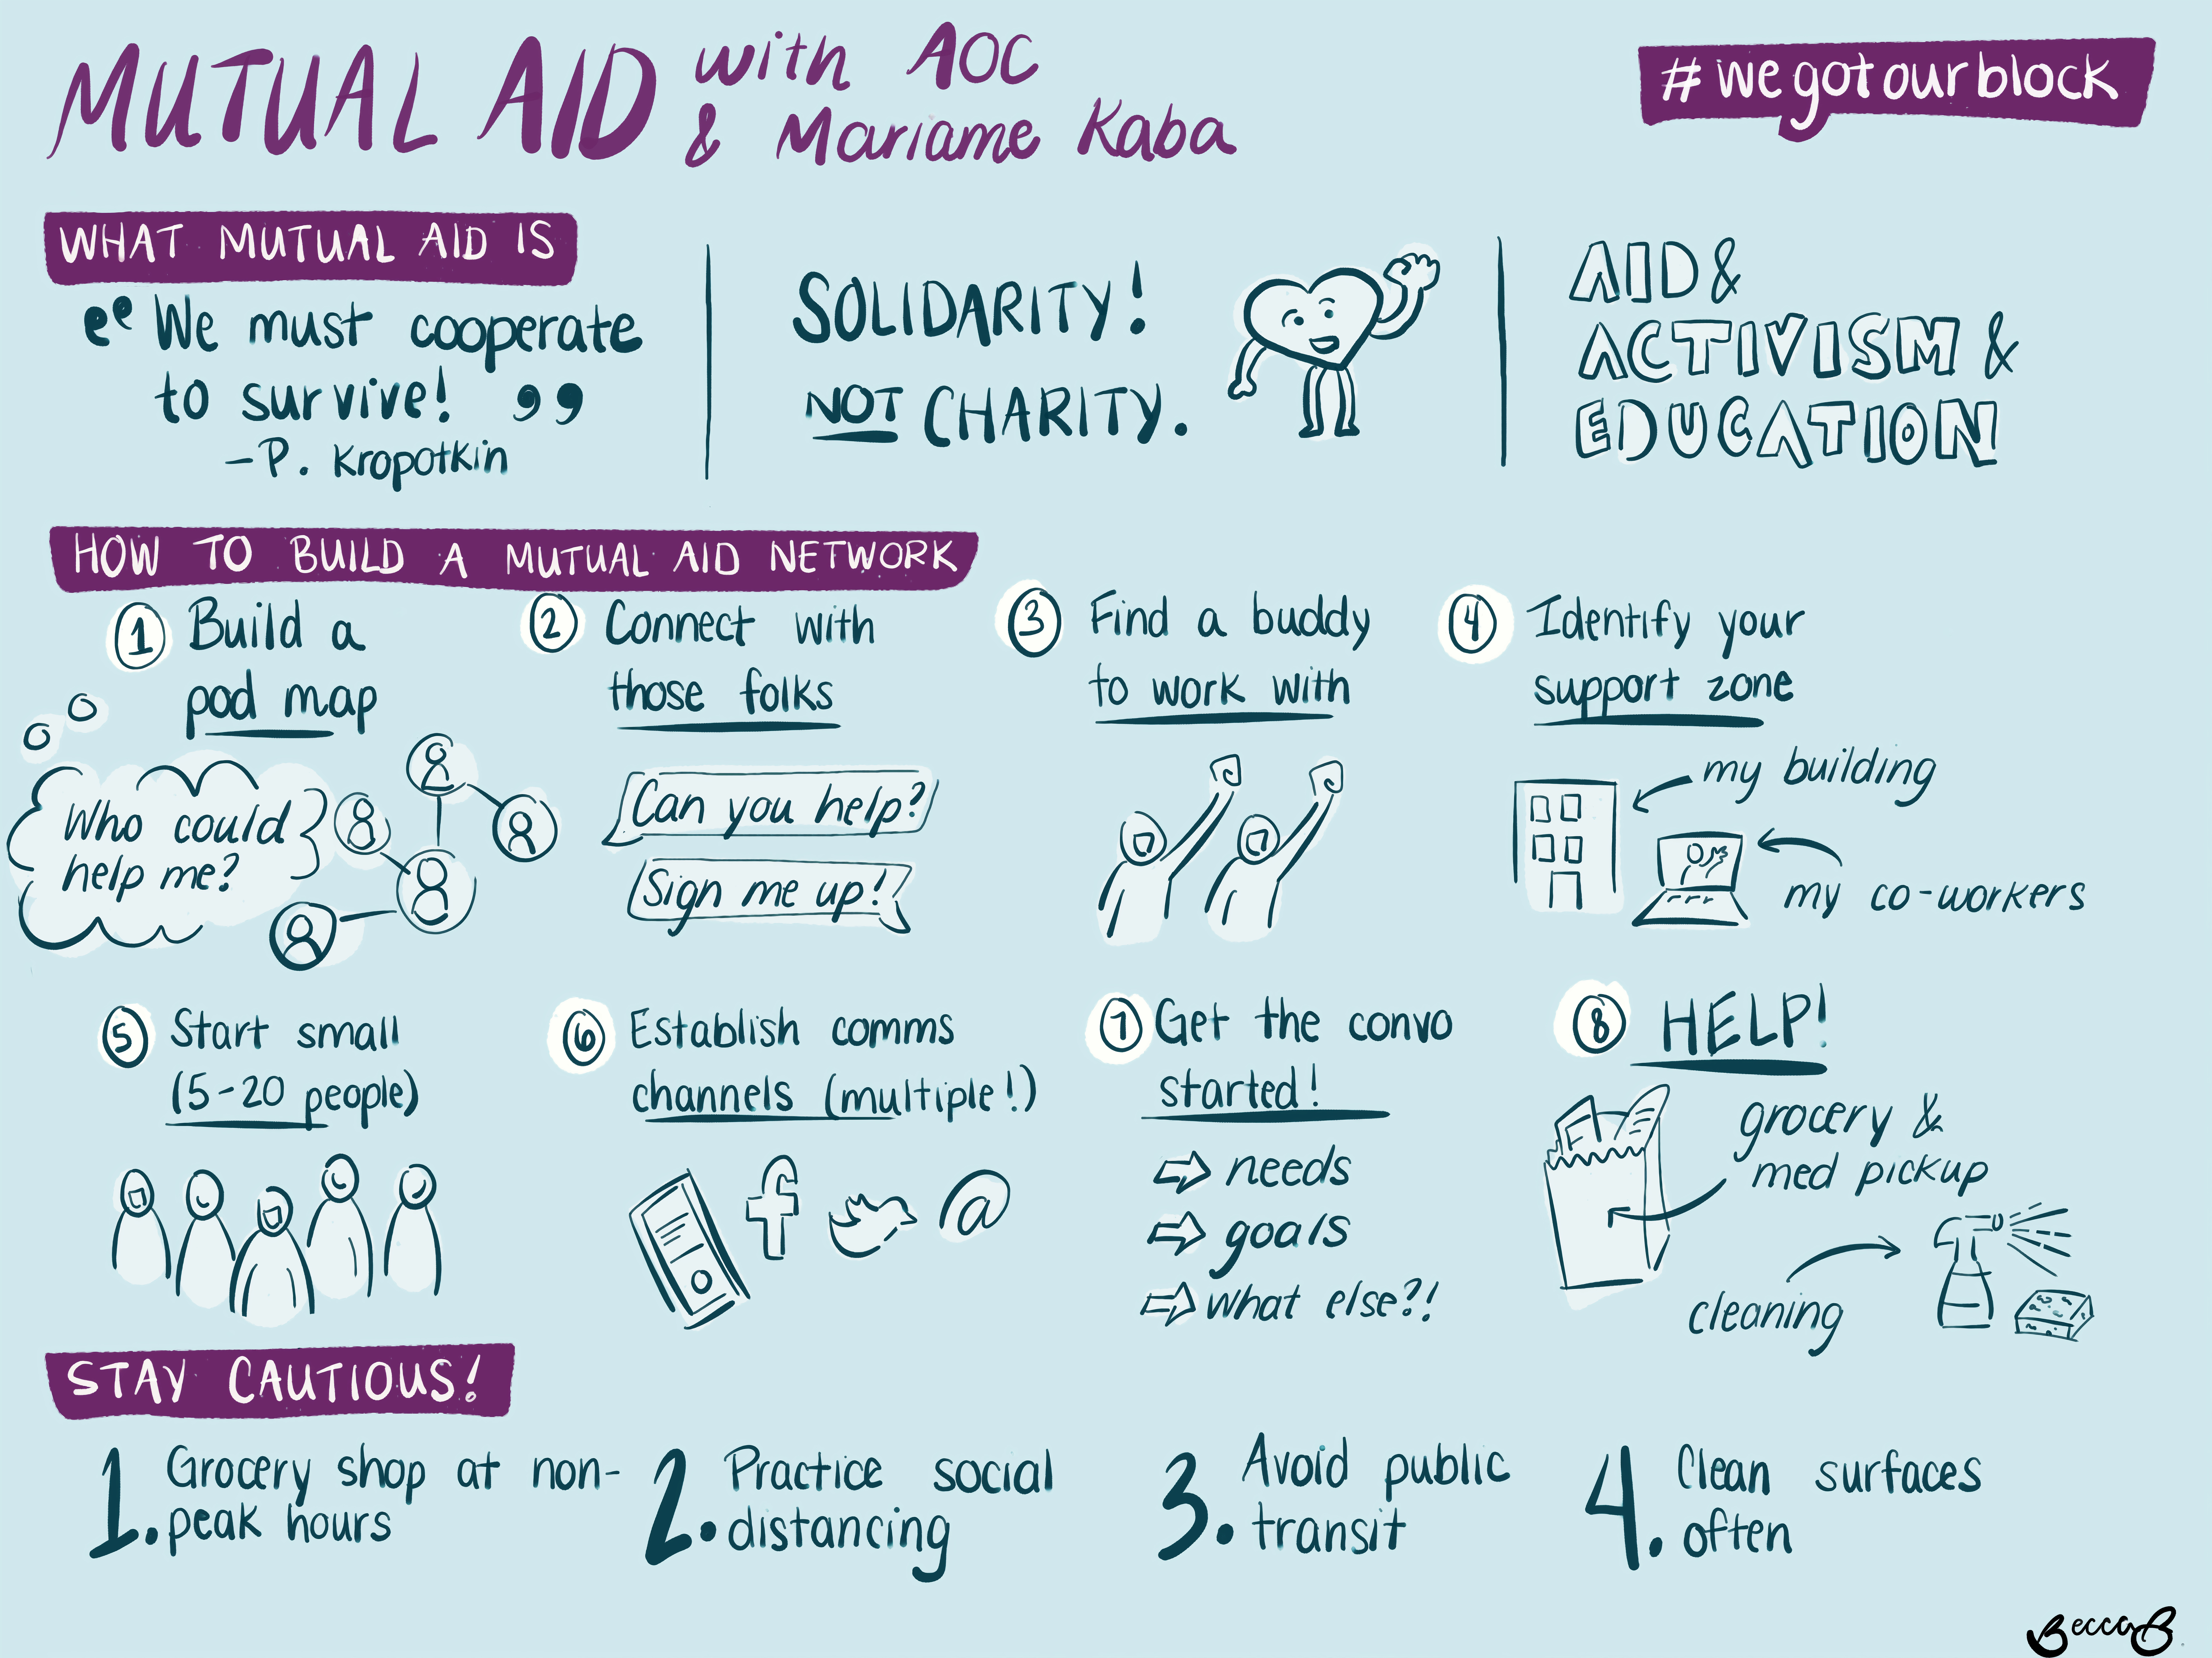 MUTUAL AID with AOC
& Mariame Kaba
#wegotourblock
WHAT MUTUAL AID IS
“We must cooperate
to survive!”
-P. Kropotkin
SOLIDARITY!
NOT CHARITY.
AID &
ACTIVISM &
EDUCATION
HOW TO BUILD A MUTUAL AID NETWORK
1 Build a
pod map
Who could
help me?
2 Connect with
those folks
Can you help?
Sign me up!
3 Find a buddy
to work with
4 Identify your
support zone
my building
my co-workers
5 Start small
(5-20 people)
6 Establish comms
channels (multiple!)
@
7 Get the convo
started!
⇨ needs
⇨ goals
⇨ what else?!
8 HELP!
grocery &
med pickup
cleaning
STAY CAUTIOUS!
1. Grocery shop at non-
peak hours
2. Practice social
distancing
3. Avoid public
transit
4. Clean surfaces
often
BeccaB